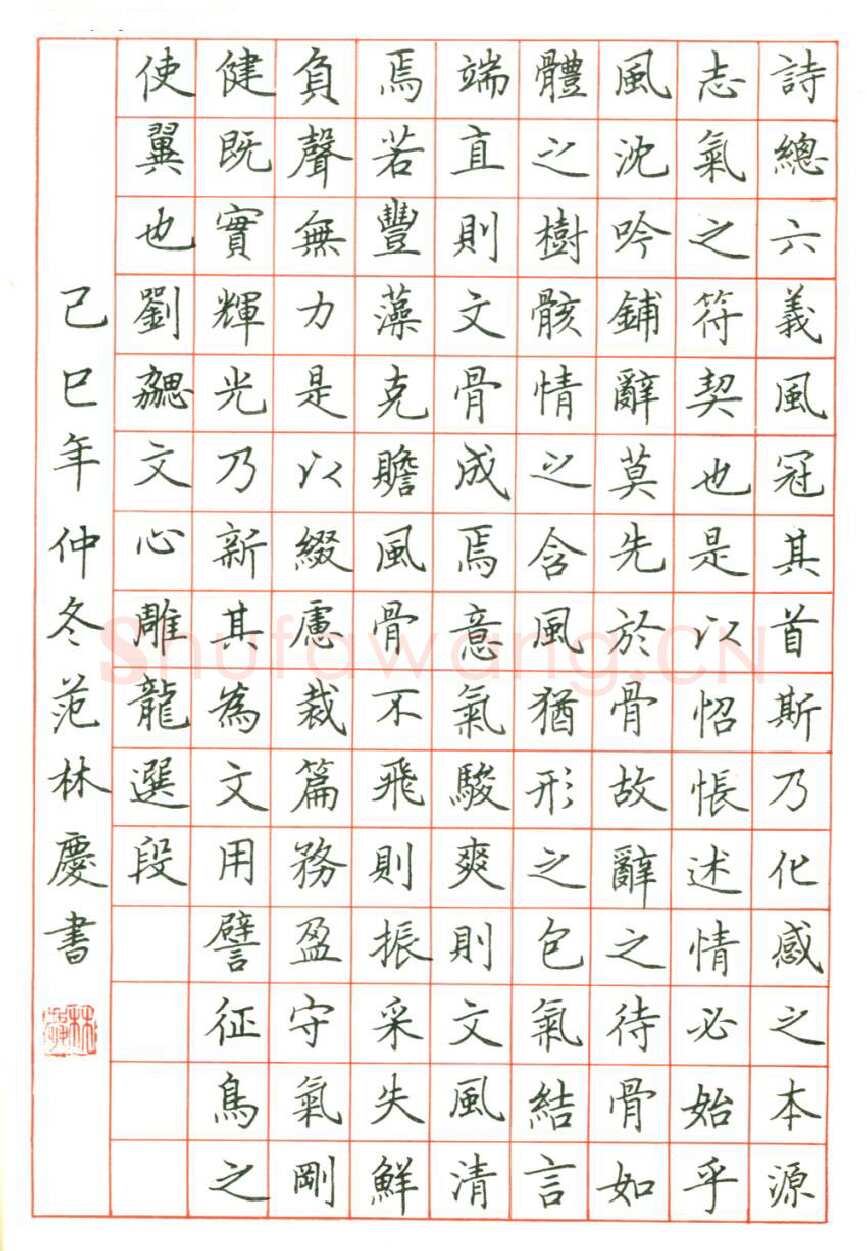 詩總六義風冠其首斯乃化感之本源
志氣之符契也是以怊悵述情必始乎
風沈吟鋪辭莫先於骨故辭之待骨如
體之樹骸情之含風猶形之包氣結言
端直則文骨成焉意氣駿爽則文風清
焉若豐藻克贍風骨不飛則振采失鮮
負聲無力是以綴慮裁篇務盈守氣剛
健既實輝光乃新其為文用譬征鳥之
使翼也劉勰文心雕龍選段
己巳年仲冬范林慶書
Shufawang.CN